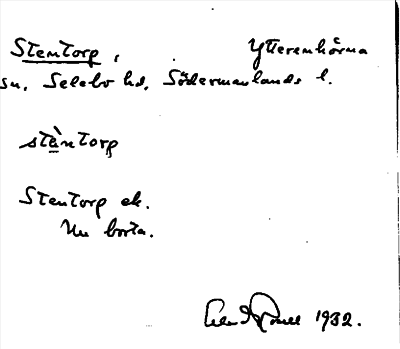 Stentorp, Ytterenhörna
sn, Selebo hd, Södermanlands l.
stèntorp
Stentorp ek.
Nu borta.
1932.